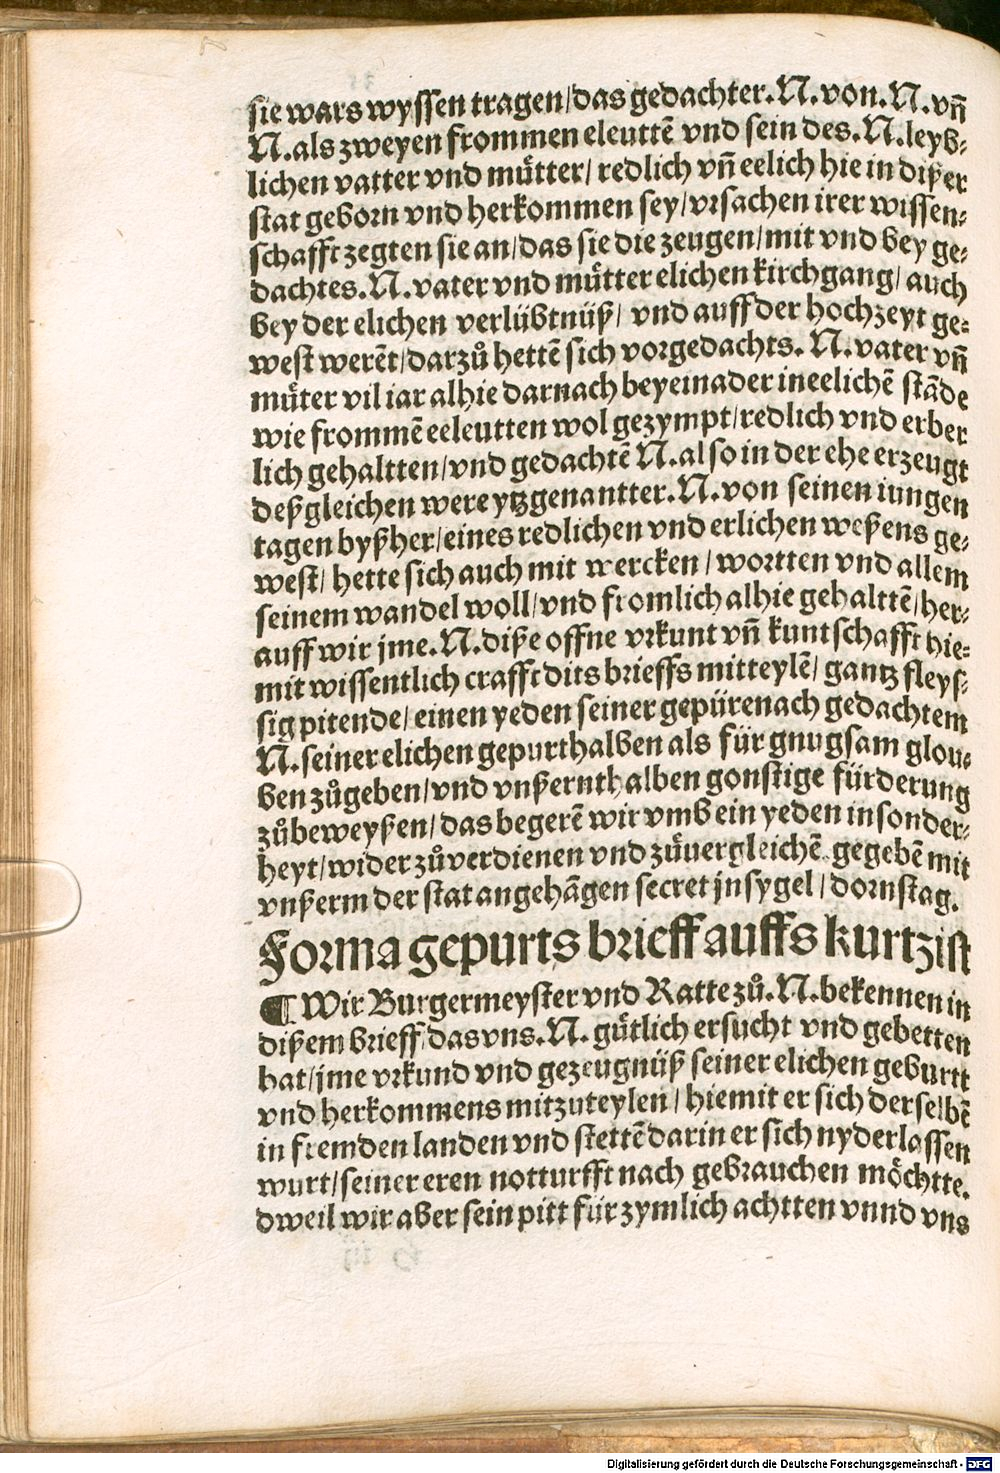 sie wars wyssen tragen/das gedachter.N.von.N.vñ
N.als zweyen frommen eleuttē vnd sein des.N.leyb-
lichen vatter vnd muͤtter/ redlich vñ eelich hie in dißer
stat geborn vnd herkommen sey/vrsachen irer wissen-
schafft zegten sie an/das sie die zeugen/mit vnd bey ge-
dachtes.N.vater vnd muͤtter elichen kirchgang/ auch
bey der elichen verlübtnüß/ vnd auff der hochzeyt ge-
west werēt/darzů hettē sich vorgedachts. N.vater vñ
muͤter vil iar alhie darnach beyeinader in eelichē stāde
wie frommē eeleutten wol gezympt/redlich vnd erber
lich gehaltten/vnd gedachtē N.also in der ehe erzeugt
deßgleichen were ytzgenantter.N.von seinen iungen
tagen byßher/eines redlichen vnd erlichen weßens ge-
west/ hette sich auch mit wercken/wortten vnd allem
seinem wandel woll/vnd fromlich alhie gehalttē/her-
auff wir jme.N.diße offne vrkunt vñ kuntschafft hie-
mit wissentlich crafft dits brieffs mitteylē/ gantz fleys-
sig pitende/einen yeden seiner gepüre nach gedachtem
N.seiner elichen gepurthalben als für gnugsam glou-
ben zůgeben/vnd vnßernthalben gonstige fürderung
zůbeweyßen/das begerē wir vmb ein yeden in sonder-
heyt/wider zůverdienen vnd zůuergleichē.gegebē mit
vnßerm der stat angehāgen secret jnsygel/dornstag.
Forma gepurts brieff auffs kurtzist
¶ Wir Burgermeyster vnd Ratte zů.N.bekennen in
dißem brieff/das vns.N. guͤtlich ersucht vnd gebetten
hat/jme vrkund vnd gezeugnüß seiner elichen geburtt
vnd herkommens mitzuteylen/hiemit er sich derselbē
in fremden landen vnd stettē darin er sich nyderlassen
wurt/seiner eren notturfft nach gebrauchen moͤchtte.
dweil wir aber sein pitt für zymlich achtten vnnd vns
Digitalisierung gefördert durch die Deutsche Forschungsgemeinschaft - DFG